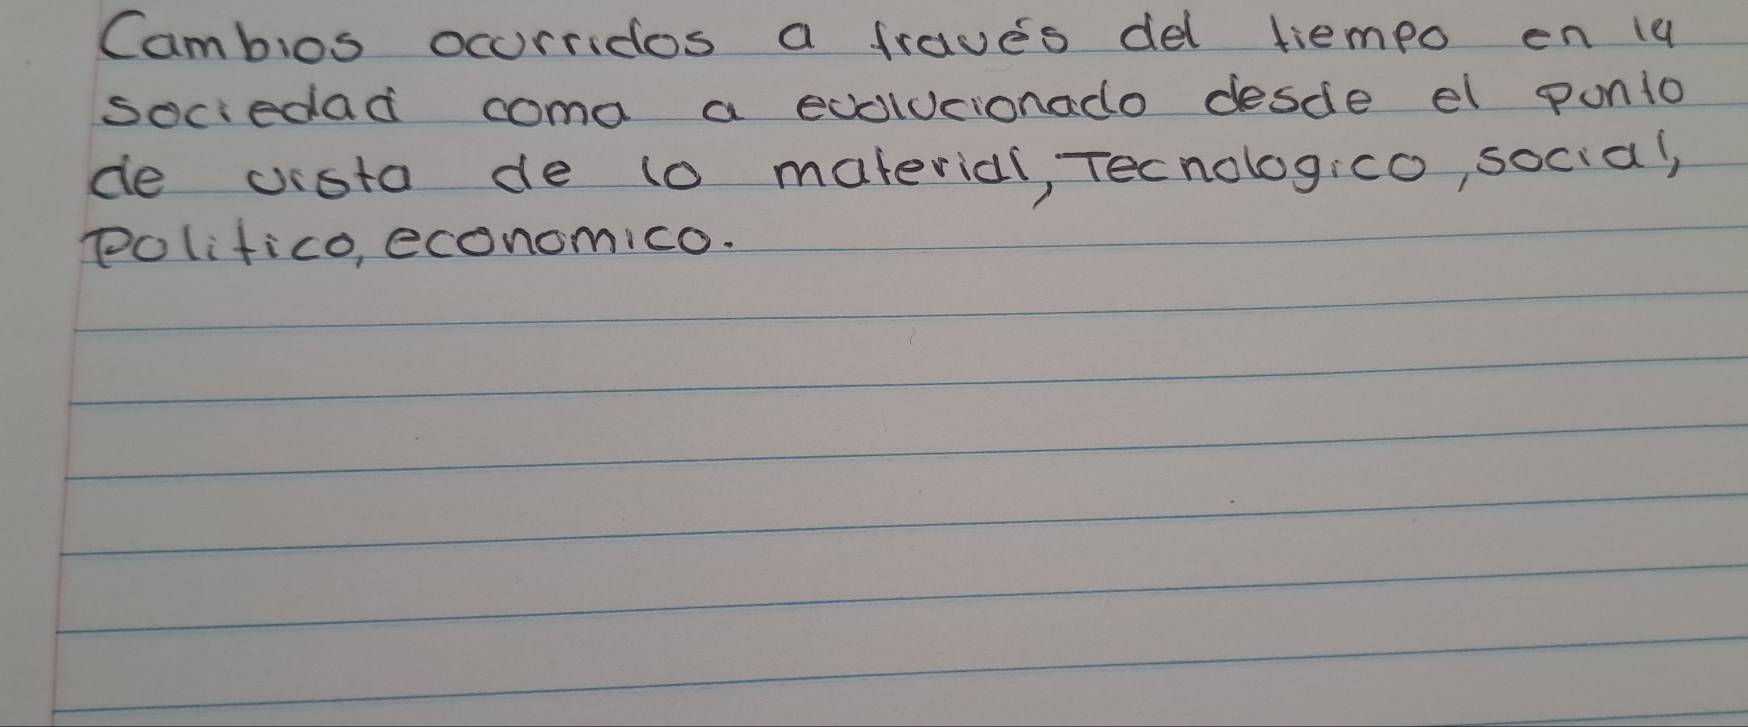 Cambios ocurridos a través del tiempo en la
sociedad coma a evolucionado desde el punto
de vista de lo material, Tecnologico, social,
Politico, economico.